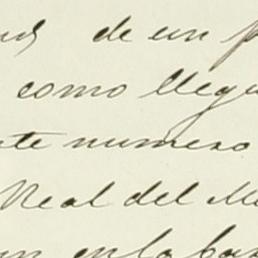 de un
como llegu
te numero
Real del M
en la